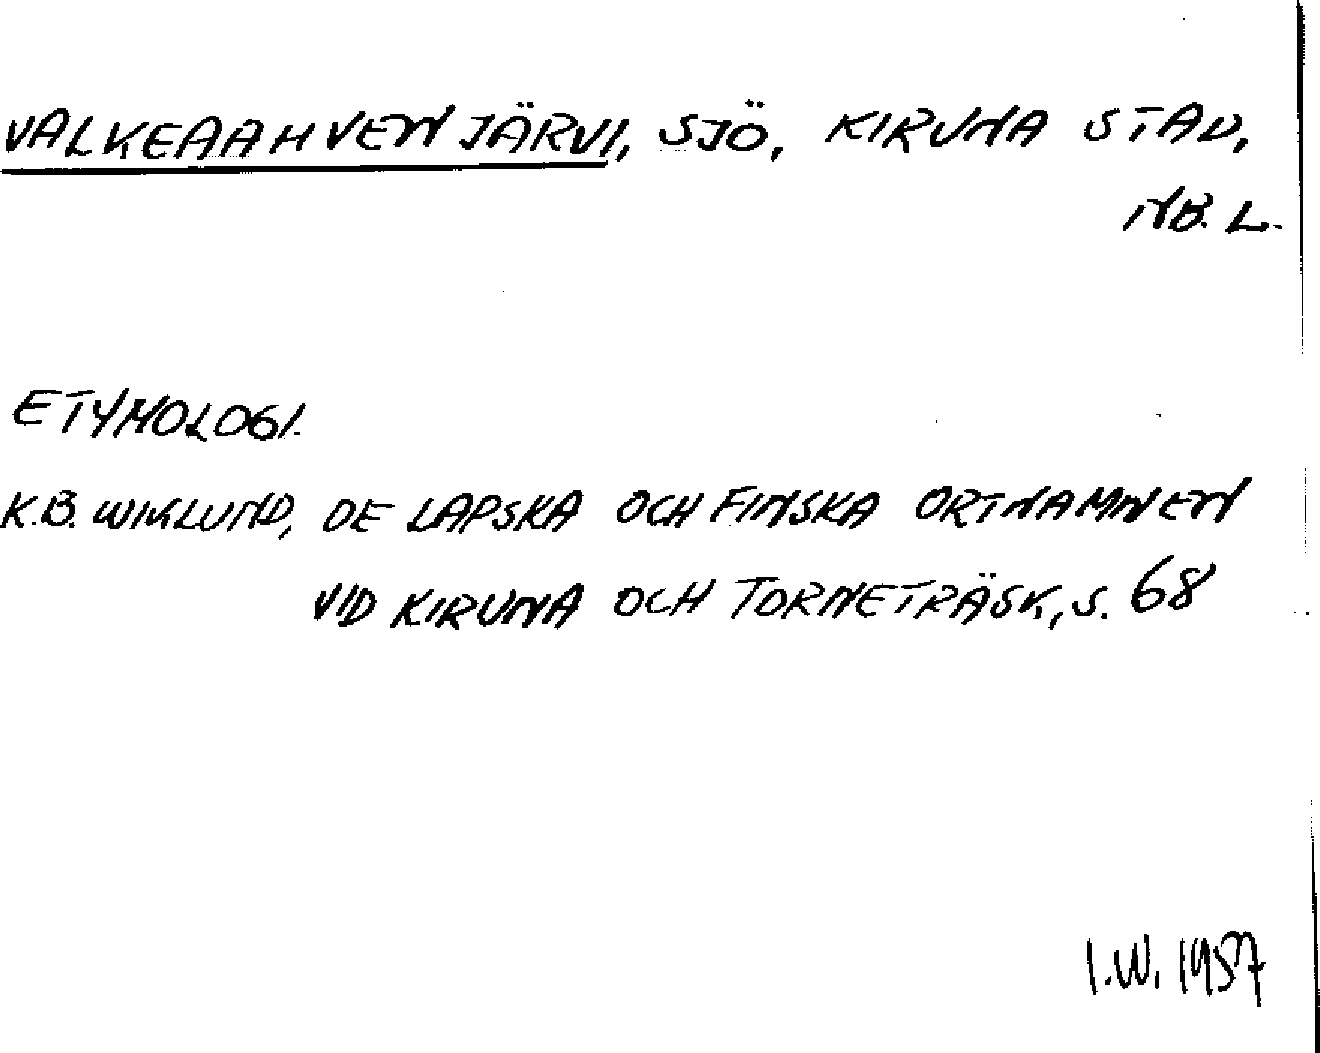 VALKEAAHVENJÄRVI, SJÖ, KIRUNA STAD,
NB. L.
ETYMOLOGI.
K.B. WIKLUND, DE LAPSKA OCH FINSKA ORTNAMNEN
VID KIRUNA OCH TORNETRÄSK, S. 68
I.W. 1957